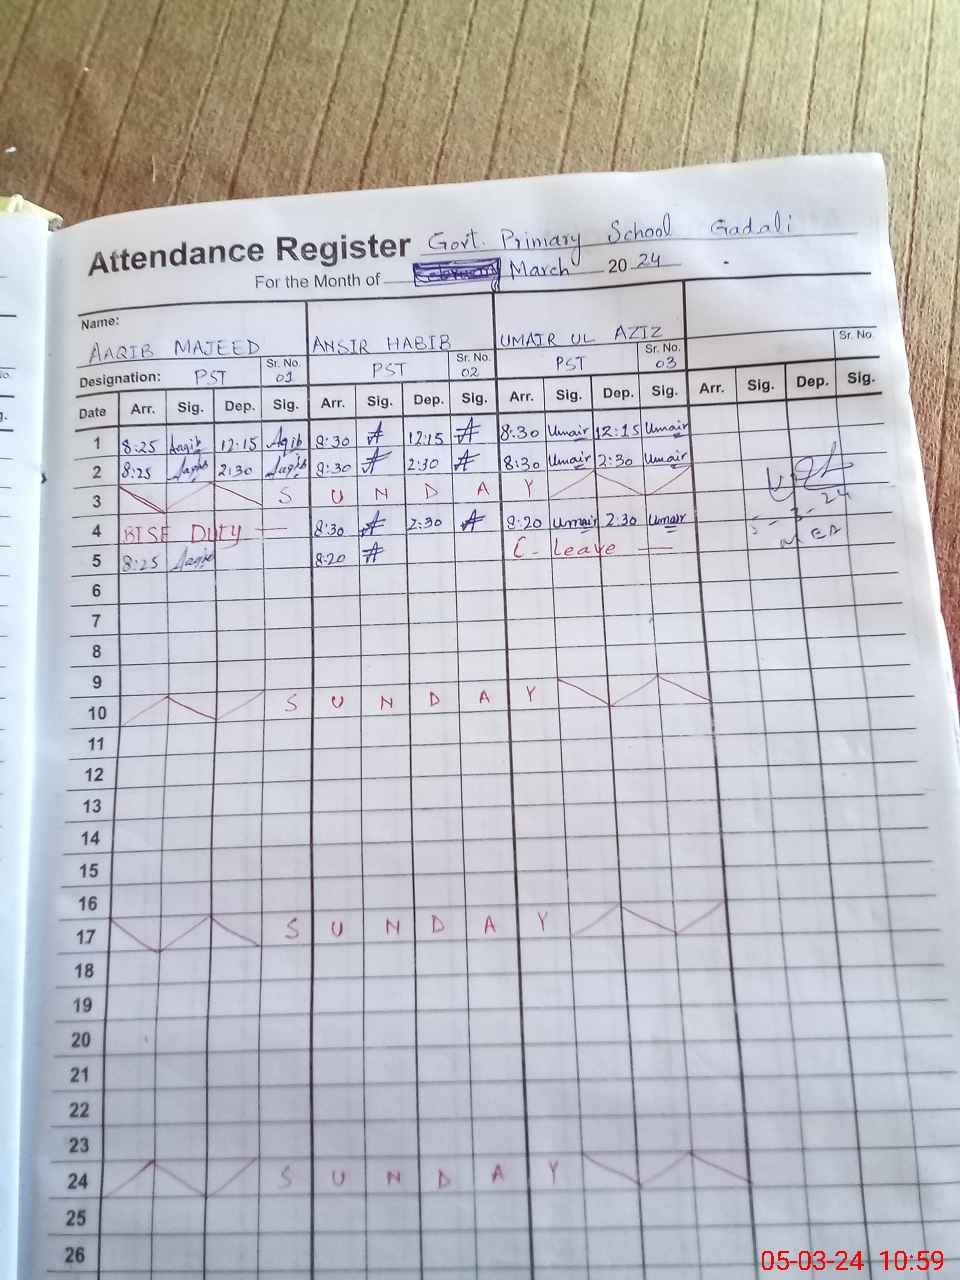 Attendance Register Govt. Primary School Gadali
For the Month of March 2024
Name:
AAQIB MAJEED ANSIR HABIB UMAIR UL AZIZ
Designation: PST Sr. No. 01 PST Sr. No. 02 PST Sr. No. 03 Sr. No.
Date Arr. Sig. Dep. Sig. Arr. Sig. Dep. Sig. Arr. Sig. Dep. Sig. Arr. Sig. Dep. Sig.
1 8:25 Aaqib 12:15 Aqib 8:30 12:15 8:30 Umair 12:15 Umair
2 8:25 Aaqib 2:30 Aaqib 8:30 2:30 8:30 Umair 2:30 Umair
3 S U N D A Y
4 BISE Duty 8:30 2:30 8:20 Umair 2:30 Umair
5 8:25 Aaqib 8:20 C-Leave
6
7
8
9
10 S U N D A Y
11
12
13
14
15
16
17 S U N D A Y
18
19
20
21
22
23
24 S U N D A Y
25
26
05-03-24 10:59